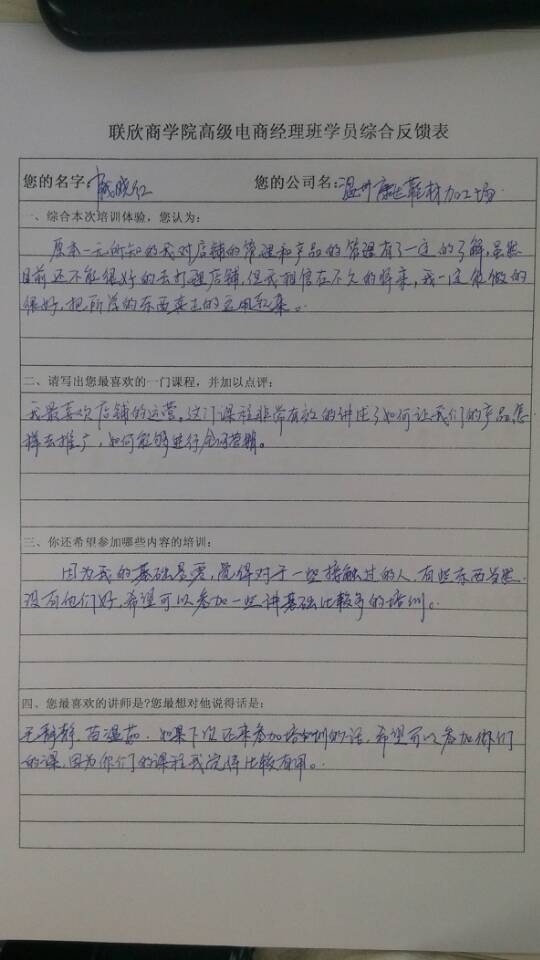 联欣商学院高级电商经理班学员综合反馈表
您的名字: 晓红 您的公司名: 温州康达鞋材加工场
一、综合本次培训体验，您认为:
原来一无所知的我对店铺的管理和产品的管理有了一定的了解,虽然
目前还不能很好的去打理店铺,但我相信在不久的将来,我一定能做的
很好,把所学的东西真正的运用起来。
二、请写出您最喜欢的一门课程，并加以点评:
我最喜欢店铺的运营,这门课程非常有效的讲述了如何让我们的产品怎
样去推广,如何能够进行全网营销。
三、你还希望参加哪些内容的培训:
因为我的基础是零,觉得对于一些接触过的人,有些东西当然
没有他们好,希望可以参加一些讲基础比较多的培训。
四、您最喜欢的讲师是?您最想对他说得话是:
毛静静,苗温茹.如果下次还来参加培训的话,希望可以参加你们
的课,因为你们的课程我觉得比较有用。